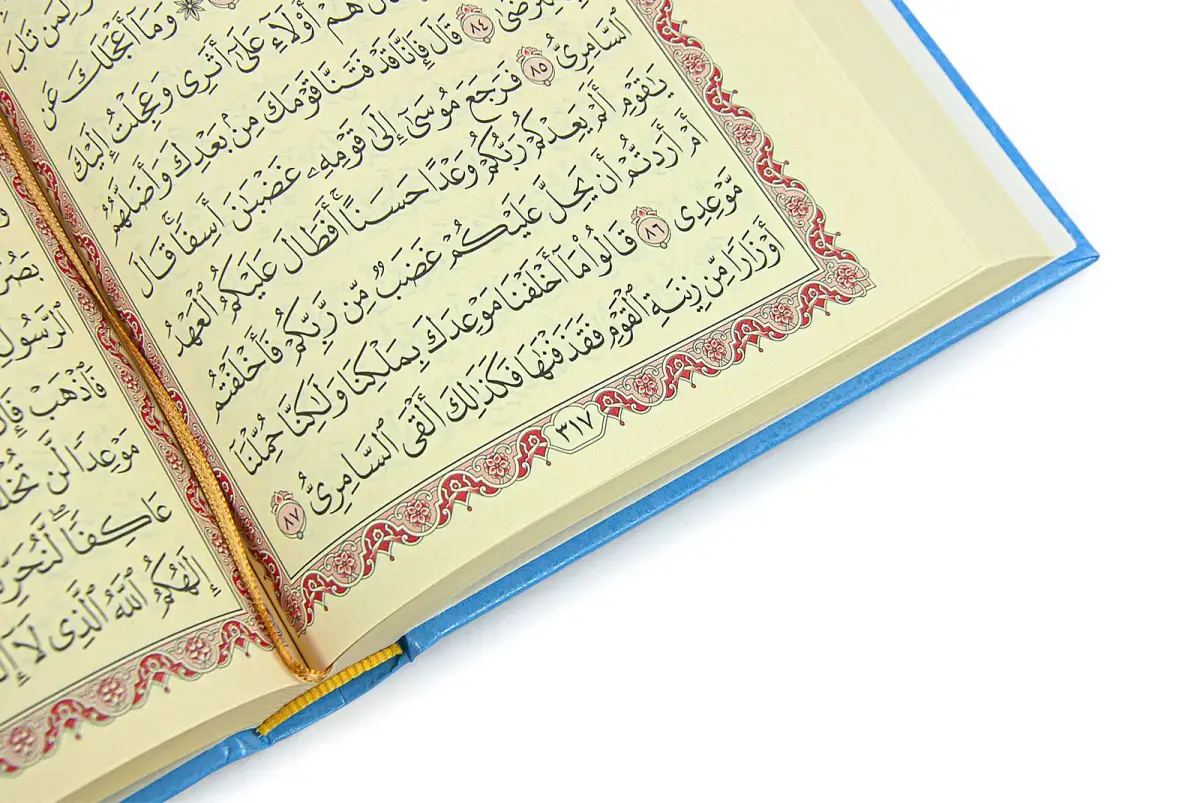 لِّمَن تَابَ
وَمَآ أَعْجَلَكَ عَن
هُمْ أُو۟لَآءِ عَلَىٰٓ أَثَرِى وَعَجِلْتُ إِلَيْكَ
لِتَرْضَىٰ ٨٤ قَالَ فَإِنَّا قَدْ فَتَنَّا قَوْمَكَ مِنۢ بَعْدِكَ وَأَضَلَّهُمُ
ٱلسَّامِرِىُّ ٨٥ فَرَجَعَ مُوسَىٰٓ إِلَىٰ قَوْمِهِۦ غَضْبَٰنَ أَسِفًا ۚ قَالَ
يَٰقَوْمِ أَلَمْ يَعِدْكُمْ رَبُّكُمْ وَعْدًا حَسَنًا ۚ أَفَطَالَ عَلَيْكُمُ ٱلْعَهْدُ
أَمْ أَرَدتُّمْ أَن يَحِلَّ عَلَيْكُمْ غَضَبٌ مِّن رَّبِّكُمْ فَأَخْلَفْتُم
مَّوْعِدِى ٨٦ قَالُوا۟ مَآ أَخْلَفْنَا مَوْعِدَكَ بِمَلْكِنَا وَلَٰكِنَّا حُمِّلْنَآ
أَوْزَارًا مِّن زِينَةِ ٱلْقَوْمِ فَقَذَفْنَٰهَا فَكَذَٰلِكَ أَلْقَى ٱلسَّامِرِىُّ ٨٧
٣١٧
ٱلرَّسُولِ
فَٱذْهَبْ
مَوْعِدًا لَّن
عَاكِفًا ۖ
إِلَٰهُكُمُ ٱللَّهُ ٱلَّذِى لَآ